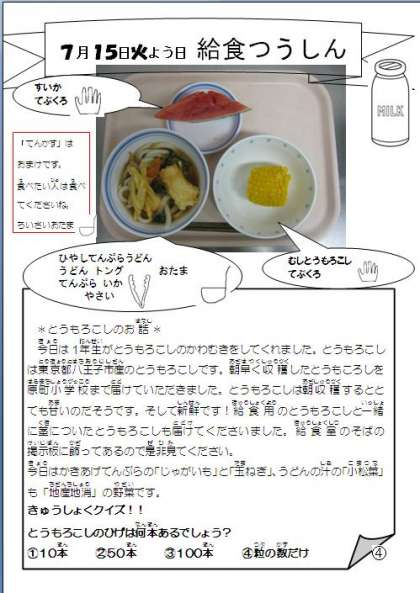 7月15日火よう日 給食つうしん
すいか
てぶくろ
MILK
「てんかす」は
おまけです。
食べたい人は食べ
てくださいね。
ちいさいおたま
ひやしてんぷらうどん
うどん トング おたま
てんぷら いか
やさい
むしとうもろこし
てぶくろ
*とうもろこしのお話*
今日は1年生がとうもろこしのかわむきをしてくれました。とうもろこし
は東京都八王子市産のとうもろこしです。朝早く収穫したとうもころしを
原町小学校まで届けていただきました。とうもろこしは朝収穫するとと
ても甘いのだそうです。そして新鮮です!給食用のとうもろこしと一緒
に茎についたとうもろこしも届けてくださいました。給食室のそばの
掲示板に飾ってあるので是非見てください。
今日はかきあげてんぷらの「じゃがいも」と「玉ねぎ」、うどんの汁の「小松菜」
も「地産地消」の野菜です。
きゅうしょくクイズ!!
とうもろこしのひげは何本あるでしょう?
①10本 ②50本 ③100本 ④粒の数だけ
④